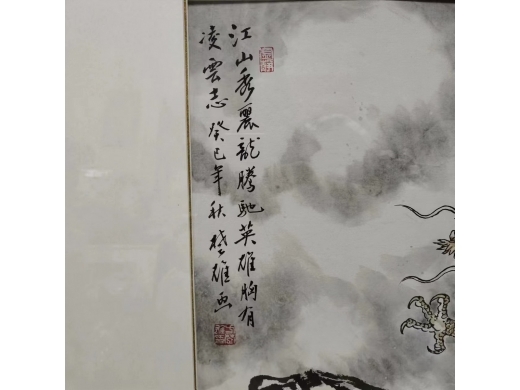 江山秀麗龍騰馳英雄胸有
凌雲志癸巳年秋楚雄画